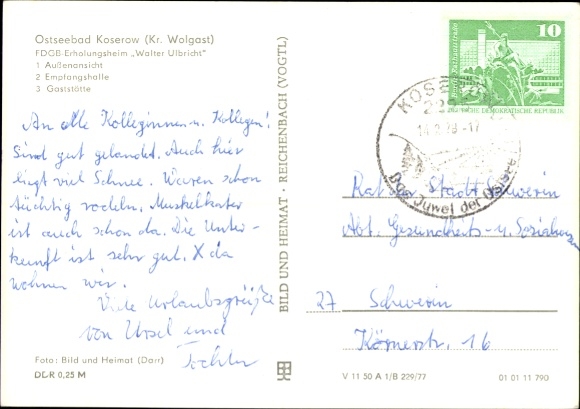 Ostseebad Koserow (Kr. Wolgast)
FDGB-Erholungsheim „Walter Ulbricht"
1 Außenansicht
2 Empfangshalle
3 Gaststätte
An alle Kolleginnen u. Kollegen!
Sind gut gelandet. Auch hier
liegt viel Schnee. Waren schon
tüchtig rodeln. Muskelkater
ist auch schon da. Die Unter-
kunft ist sehr gut. X da
wohnen wir.
Viele Urlaubsgrüße
von Ursel und
Tochter
Foto: Bild und Heimat (Darr)
DDR 0,25 M
BILD UND HEIMAT · REICHENBACH (VOGTL)
10
DEUTSCHE DEMOKRATISCHE REPUBLIK
KOSEROW
Das Juwel der Ostsee
Rat der Stadt Schwerin
Abt. Gesundheits- u. Sozialwesen
27 Schwerin
Körnerstr. 16
V 11 50 A 1/B 229/77
01 01 11 790